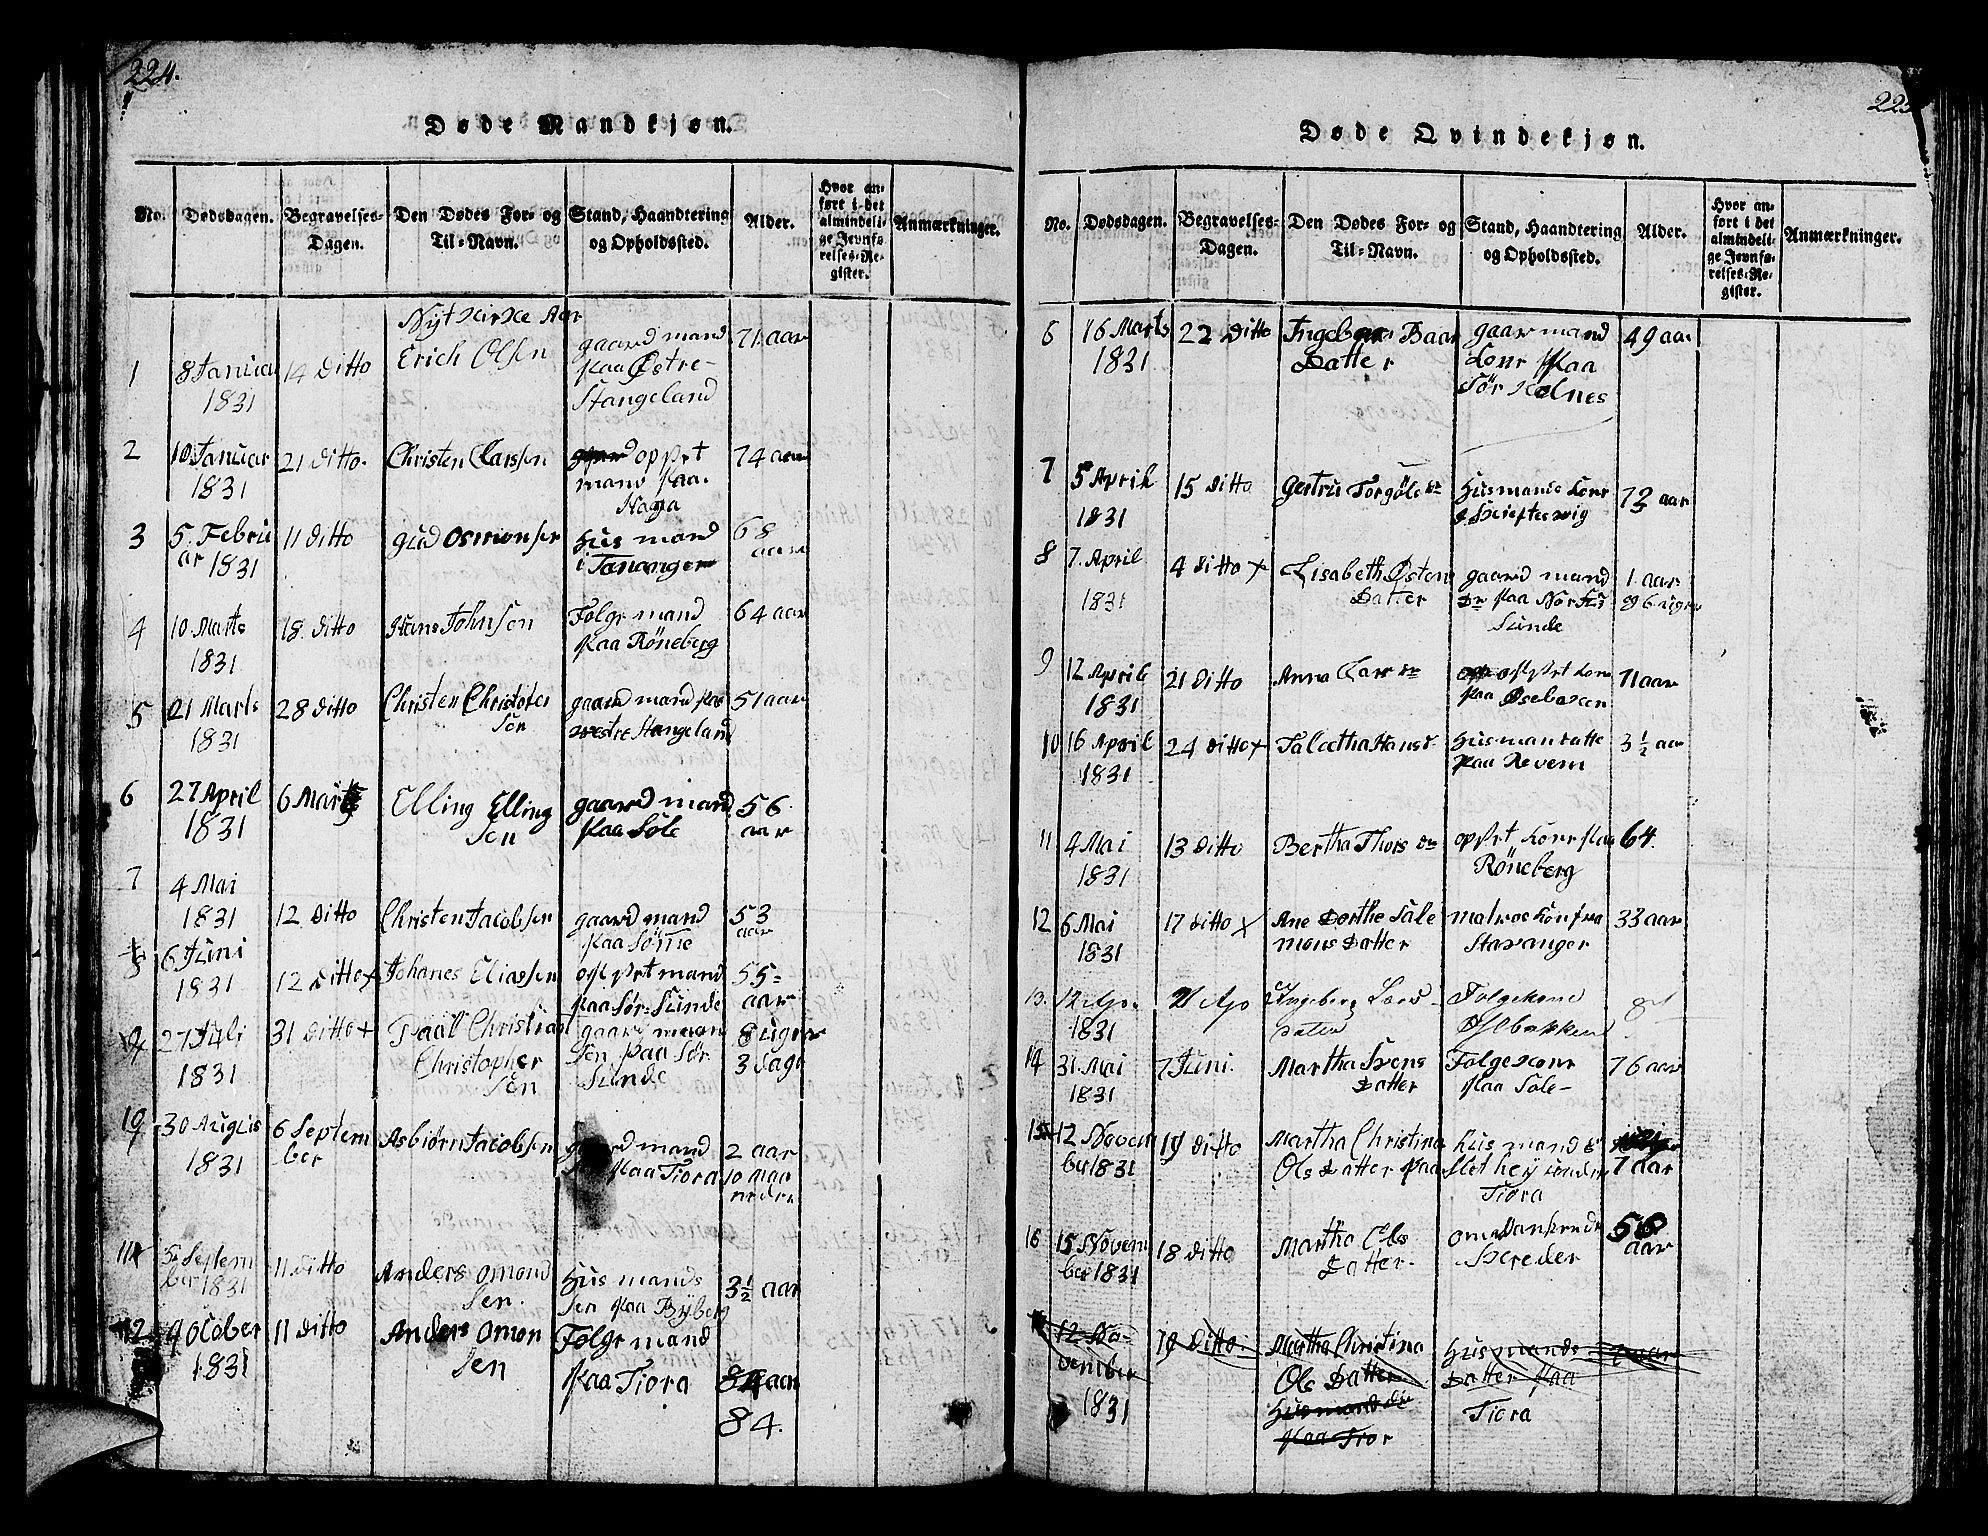 224.
Døde Mandkjøn.
No. Dødsdagen. Begravelses-Dagen. Den Dødes For- og Til-Navn. Stand, Haandtering og Opholdssted. Alder. Hvor anført i det almindelige Jevnførelses-Register. Anmærkninger.
Nyt Kirke Aar
1 8 Januar 1831 14 Ditto Erich Olsen gaard mand paa Østre-Stangeland 71 aar
2 10 Januar 1831 21 Ditto. Christen Larssen opsyt mand paa Haga 74 aar
3 5. Februar 1831 11 Ditto Gud Osmonsen Hus mand i Tananger 68 aar
4 10 Marts 1831 18. Ditto Hans Johnsen Folge mand paa Röneberg 64 aar
5 21 Marts 1831 28 Ditto Christen Christofersen gaard mand paa westre Stangeland 51 aar
6 27 April 1831 6 Marts Elling Ellingsen gaard mand paa Sole 56 aar
7 4 Mai 1831 12 Ditto Christen Jacobsen gaard mand paa Sømme 53 aar
8 6 Juni 1831 12 Ditto x Johanes Eliassen opsyt mand paa Sør-Sunde 55= aar
9 27 Juli 1831 31 Ditto x Paal Christian Christophersen gaard mann Sen paa Sør Sunde 8 uger 3 Dage
10 30 August 1831 6 September Asbiørn Jacobsen gaard mand paa Tiora 2 aar 10 maaneder
11 5 September 1831 11 Ditto Anders Omondsen. Hus mands Sen paa Byberg 3 1/2 aar
12 9 Octber 1831 11 Ditto Anders Omonsen Folge mand paa Tiora 84 aar
84.
Døde Qvindekjøn.
No. Dødsdagen. Begravelses-Dagen. Den Dødes For- og Til-Navn. Stand, Haandtering og Opholdssted. Alder. Hvor anført i det almindelige Jevnførelses-Register. Anmærkninger.
6 16 Marts 1831 22 Ditto Ingebor Baar Datter gaar mand Kone paa Sör Kolnes 49 aar
7 5 April 1831 15 Ditto Gertru Torgöls Dr Husmands Kone 72 aar
8 7. April 1831 4 Ditto x Lisabeth Østens Datter gaard mand Dr paa Norde Sunde 1. aar og 6 uger
9 12 April 1831 21 Ditto Anna Lars Dr opsyt Kone paa Øsebaken 71 aar
10 16 April 1831 24 Ditto x Taletha Hans D. Husman datte paa Revem 3 1/2 aar
11 4 Mai 1831 13 Ditto Bertha Thors Dr opsyt Kone paa Röneberg 64.
12 6 Mai 1831 17 Ditto x Ane Dorthe Salemons Datter matros Kon fra Stavanger 33 aar
13. 12 Apr. 1831 21 Apr Ingeborg Lars-datter Folgekone Øsebakken
14 31. Mai 1831 7 Juni. Martha Svens Datter Folge Kone paa Sole- 76 aar
15 12 November 1831 19 Ditto Martha Christina Ols Datter paa Hus mand Slethey under Tiora 7 aar
16 15 November 1831 18 Ditto Martha Ols Datter. omvankende 56 aar
12 November 1831 19 Ditto Martha Christina Ols Datter Husmand Dr paa Tior Husmands Datter paa Tiora